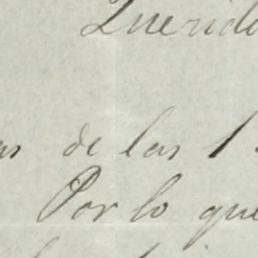 Querido
as de las 1
Por lo que